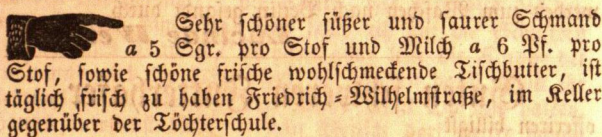 Sehr schöner süßer und saurer Schmand
a 5 Sgr. pro Stof und Milch a 6 Pf. pro
Stof, sowie schöne frische wohlschmeckende Tischbutter, ist
täglich frisch zu haben Friedrich-Wilhelmstraße, im Keller
gegenüber der Töchterschule.